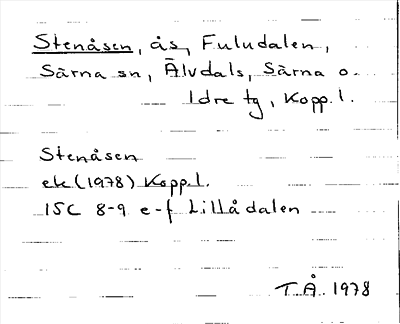 Stenåsen, ås, Fuludalen,
Särna sn, Älvdals, Särna o.
Idre tg, Kopp.l.
Stenåsen
ek (1978) Kopp.l.
15C 8-9 e-f Lillådalen
T.Å. 1978